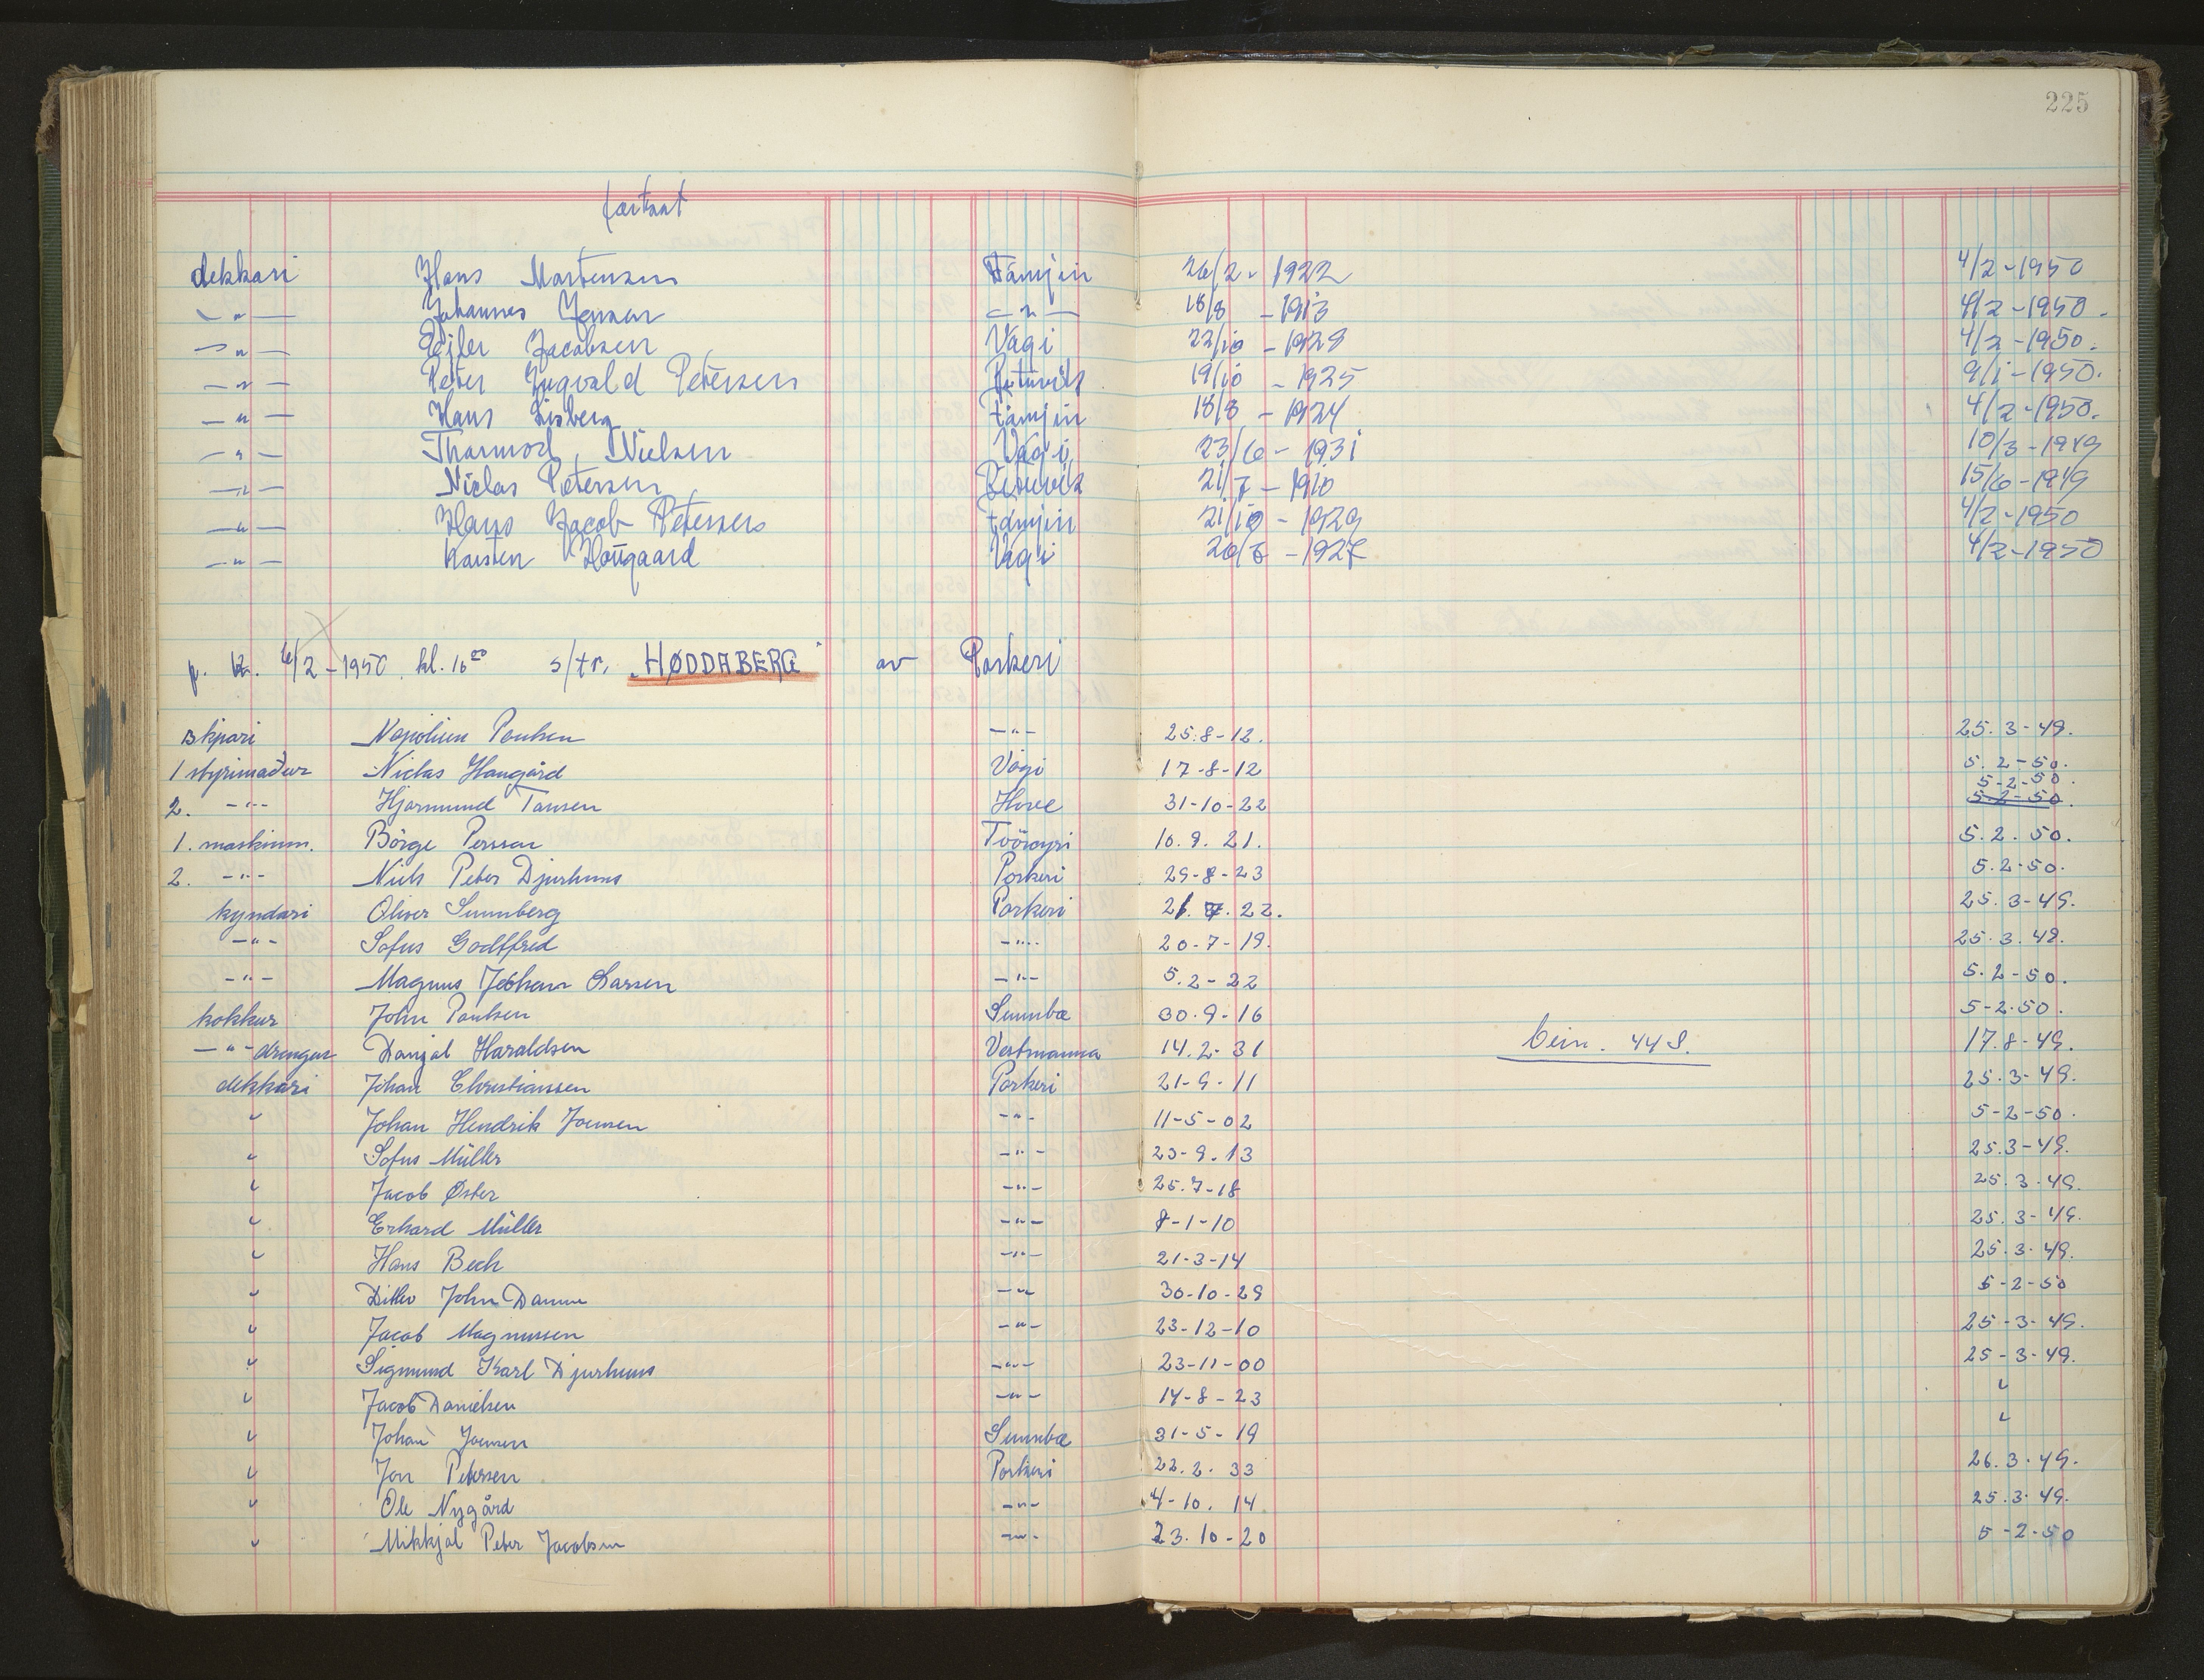 225
fortsat
dekkari Hans Mortensen Fámjin 26/2 - 1922 4/2-1950
-"- Johannes Jensen -"- 18/8 - 1913 4/2-1950.
-"- Ejler Jacobsen Vági 22/10 - 1929 4/2-1950.
-"- Peter Ingvald Petersen 19/10 - 1925 9/1-1950.
-"- Hans Lisberg Fámjin 18/8 - 1924 4/2-1950.
-"- Thormod Nielsen Vági 23/6 - 1931 10/3-1949
-"- Niclas Petersen 21/7 - 1910 15/6-1949
-"- Hans Jacob Petersen Fámjin 21/10 - 1929 4/2-1950
-"- Karsten Hougaard Vági 4/2-1950
4/2-1950. kl. 16⁰⁰ s/tr. "HØDDABERG" av Porkeri
skipari Napolion Poulsen -"- 25.8-12. 25.3-49.
1 stýrimaður Niclas Haugård Vági 17-8-12 5.2-50.
5-2-50.
2. -"- Hjarmund Tausen Hove 31-10-22 5-2-50.
1. maskinm. Börge Persson Tvöroyri 10.9.21. 5.2.50.
2. -"- Niels Peter Djurhuus Porkeri 29-8-23 5.2-50.
kyndari Oliver Sunnberg Porkeri 21.7.22. 25.3-49.
-"- Sofus Godtfred -"- 20-7-19. 25.3.49.
-"- Magnus Larsen -"- 5.2-22 5.2-50.
kokkur John Poulsen Sumba 30.9-16 5-2.50.
-"- drongur Danjal Haraldsen Vestmanna 14.2-31 44 17.8-49.
dekkari Johan Christianssen Porkeri 21-9-11 25.3-49.
" Johan Hendrik Joensen -"- 11-5-02 5-2-50.
" Sofus Müller -"- 23-9.13 25.3-49.
" Jacob Øster -"- 25.7-18 25.3.49.
" Erhard Müller -"- 8-1-10 25.3-49.
" Hans Bech -"- 21-3-14 25.3.49.
" Ditlev John Damm -"- 30-10-29 5-2-50
" Jacob Magnussen -"- 23-12-10 25-3-49.
" Sigmund Karl Djurhuus -"- 23-11-00 25-3-49.
" Jacob Danielsen -"- 14-8-23 "
" Johan Joensen Sumba 31-5-19 "
" Jon Petersen Porkeri 22.2.33 26.3.49.
" Ole Nygård -"- 4-10.14 25.3.49.
" Mikkjal Peter Jacobsen -"- 23.10-20 5-2-50